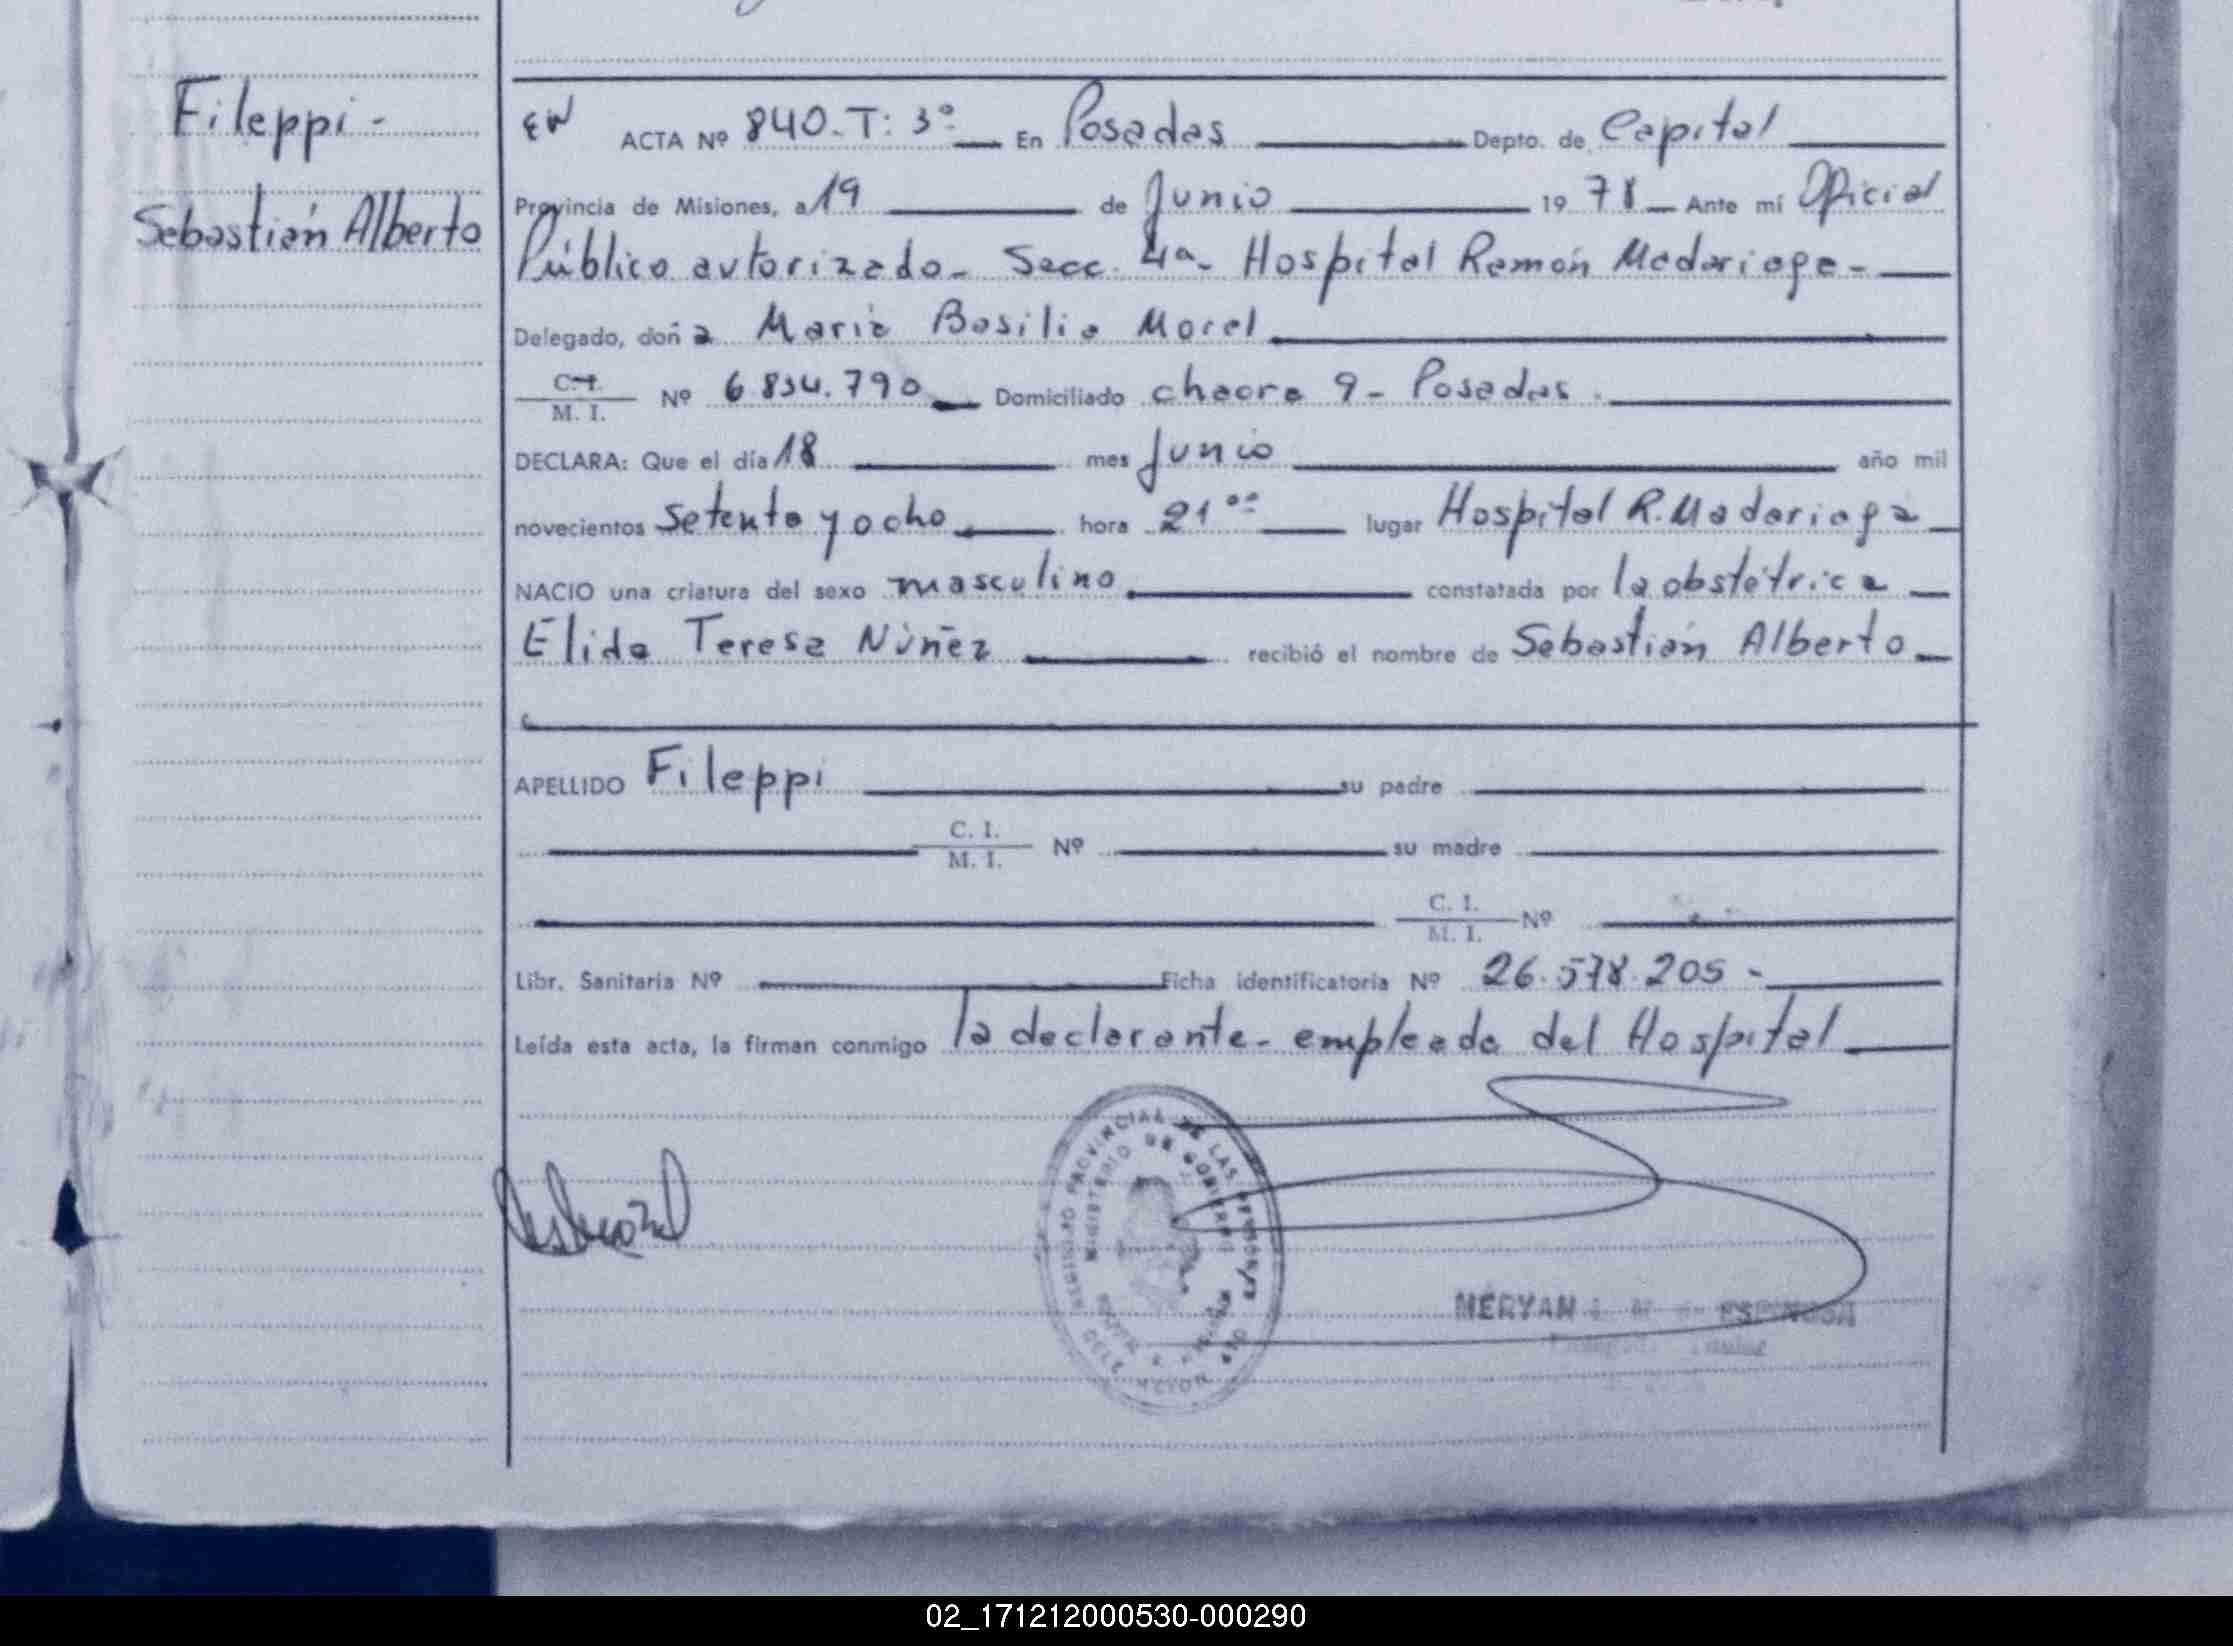 Fileppi -
Sebastián Alberto
EW ACTA Nº 840. T: 3º En Posadas Depto. de Capital
Provincia de Misiones, a 19 de Junio 19 78 Ante mí Oficial
Público autorizado - Secc. 4ª - Hospital Ramón Madariaga -
Delegado, doña Maria Basilia Morel
C. I. / M. I. Nº 6.834.790 Domiciliado chacra 9 - Posadas.
DECLARA: Que el día 18 mes Junio año mil
novecientos setenta y ocho hora 21 ºº lugar Hospital R. Madariaga
NACIO una criatura del sexo masculino constatada por la obstétrica
Elida Teresa Núñez recibió el nombre de Sebastián Alberto
APELLIDO Fileppi su padre
C. I. / M. I. Nº su madre
C. I. / M. I. Nº
Libr. Sanitaria Nº Ficha identificatoria Nº 26.578.205 -
Leída esta acta, la firman conmigo la declarante - empleada del Hospital
REGISTRO PROVINCIAL DE LAS PERSONAS
MINISTERIO DE GOBIERNO
MERYAN ESPINOSA
02_171212000530-000290